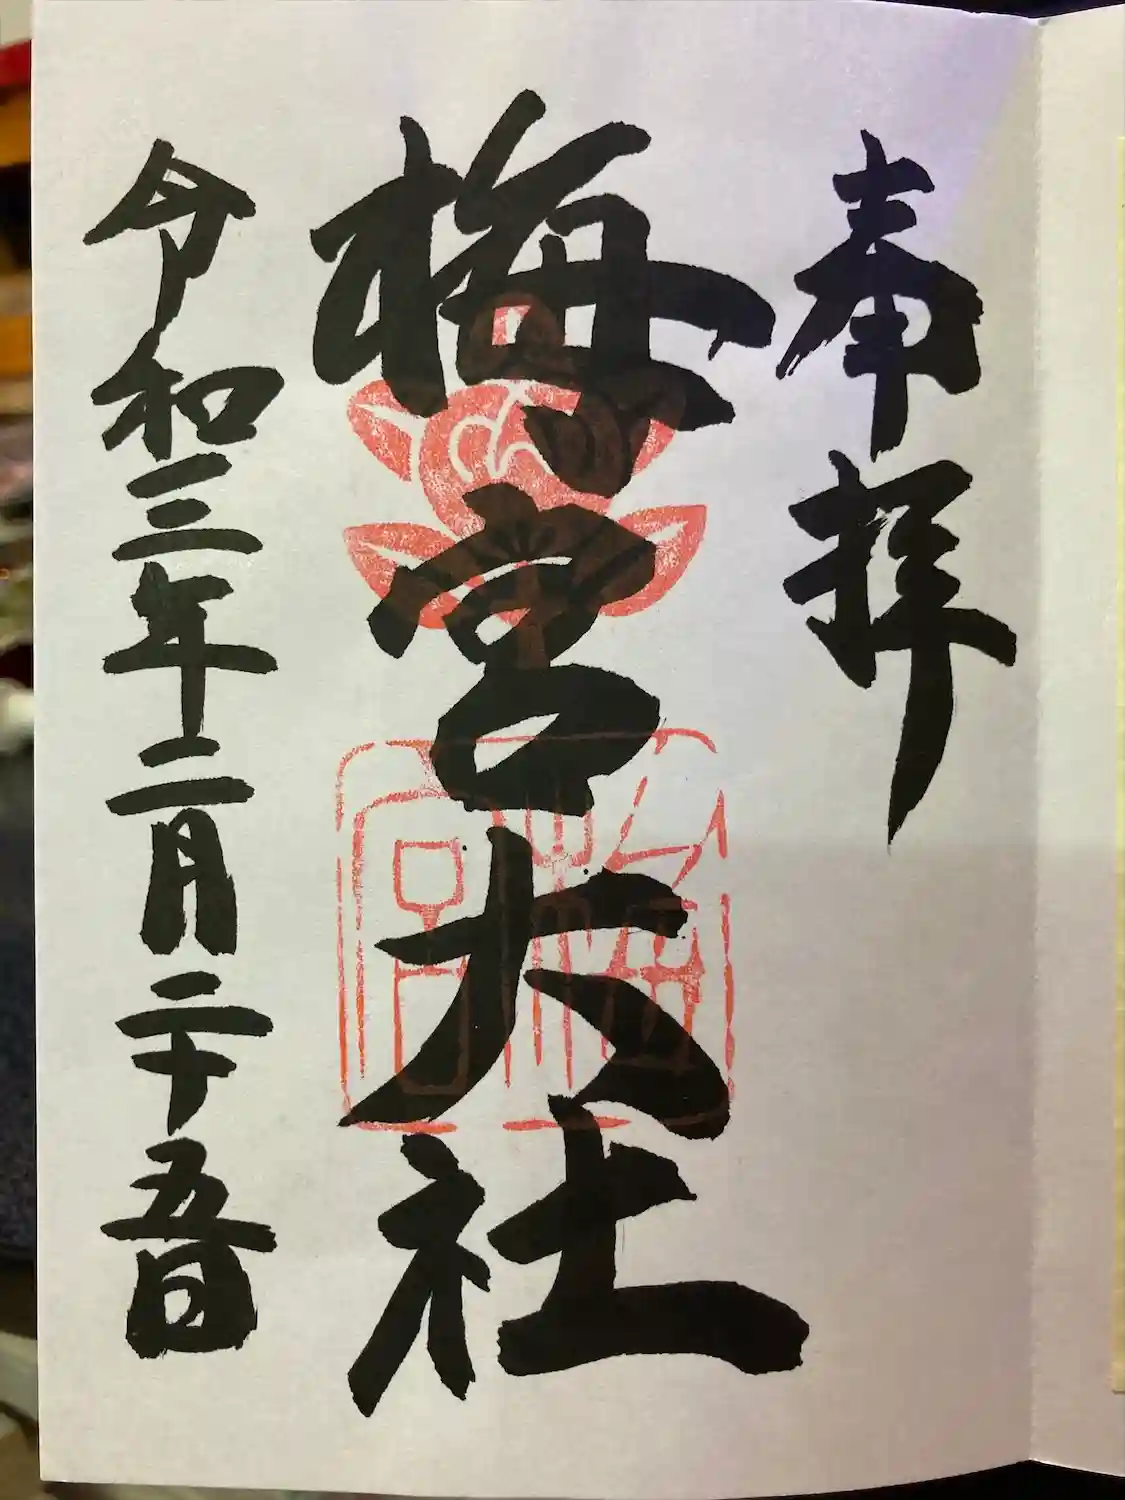 奉拝
梅宮大社
令和三年二月二十五日